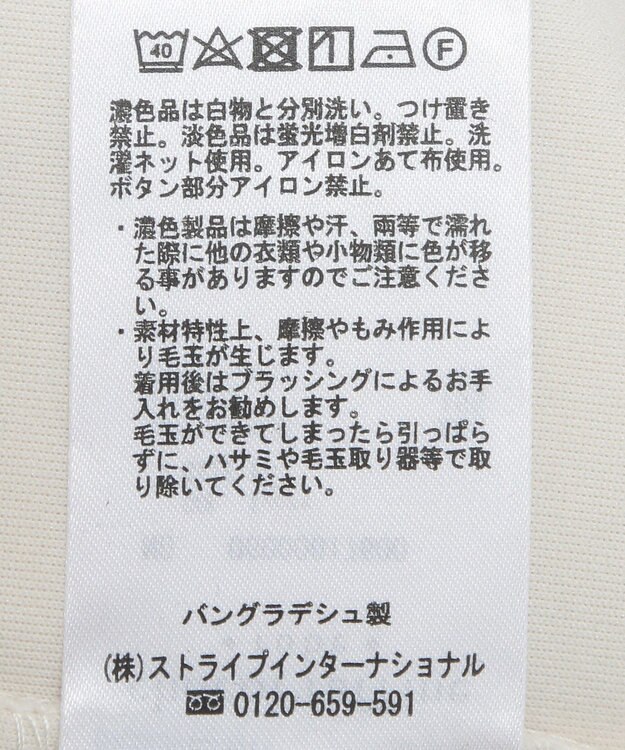 40 F
濃色品は白物と分別洗い。つけ置き
禁止。淡色品は蛍光増白剤禁止。洗
濯ネット使用。アイロンあて布使用。
ボタン部分アイロン禁止。
・濃色製品は摩擦や汗、雨等で濡れ
た際に他の衣類や小物類に色が移
る事がありますのでご注意くださ
い。
・素材特性上、摩擦やもみ作用によ
り毛玉が生じます。
着用後はブラッシングによるお手
入れをお勧めします。
毛玉ができてしまったら引っぱら
ずに、ハサミや毛玉取り器等で取
り除いてください。
バングラデシュ製
(株)ストライプインターナショナル
0120-659-591